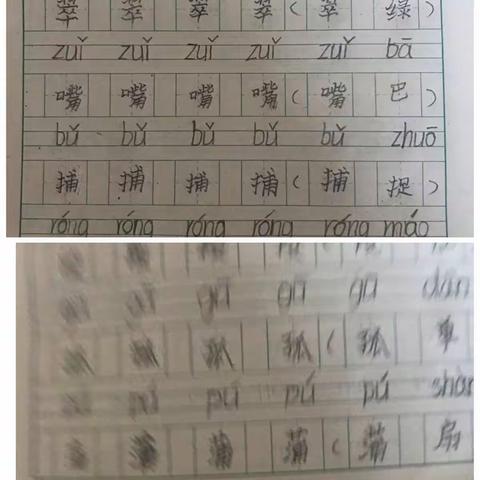 翠 翠 翠 翠 ( 翠 绿 )
zuǐ zuǐ zuǐ zuǐ zuǐ bā
嘴 嘴 嘴 嘴 ( 嘴 巴 )
bǔ bǔ bǔ bǔ bǔ zhuō
捕 捕 捕 捕 ( 捕 捉 )
róng róng róng róng róng máo
gū gū gū dān
孤 孤 孤 孤 ( 孤 单
pú pú pú pú
蒲 蒲 蒲 ( 蒲 扇